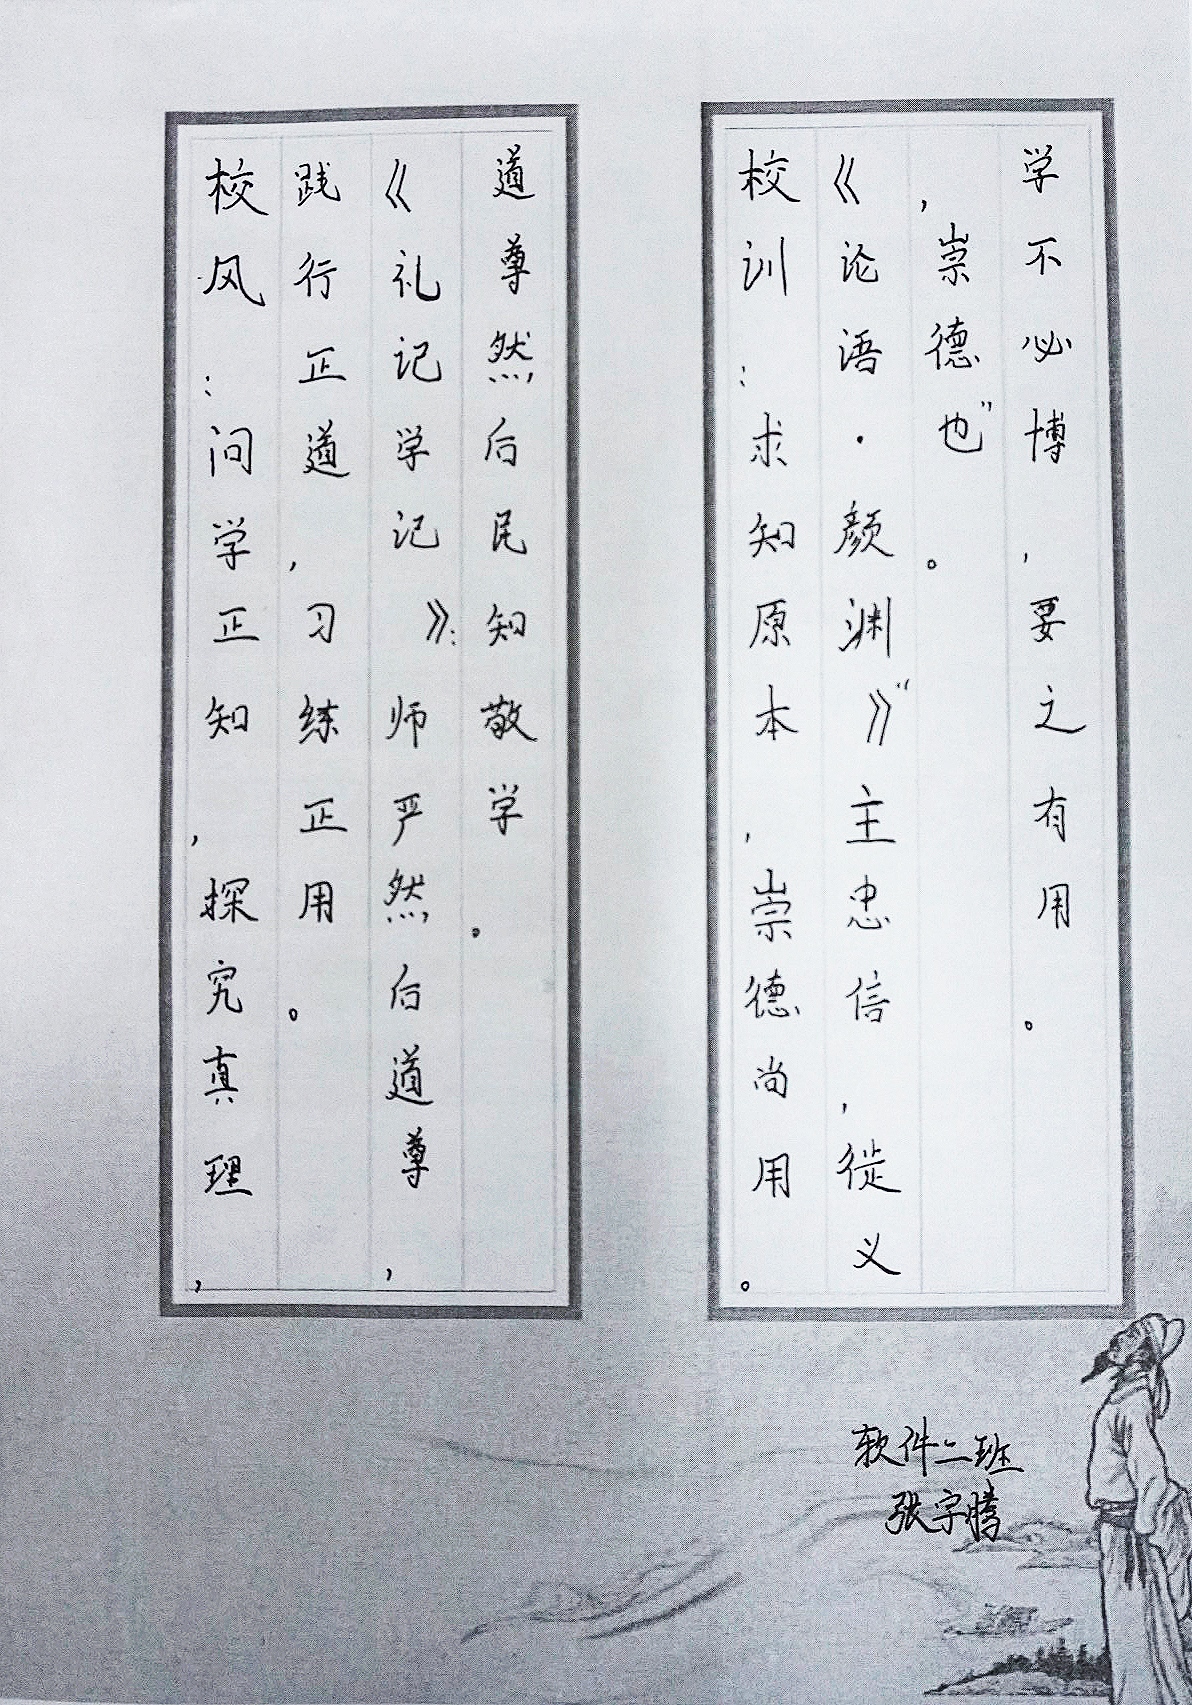 校风：问学正知，探究真理，
践行正道，习练正用。
《礼记学记》：师严然后道尊，
道尊然后民知敬学。
校训：求知原本，崇德尚用。
《论语·颜渊》“主忠信，徙义
，崇德也”。
学不必博，要之有用。
软件二班
张宇腾